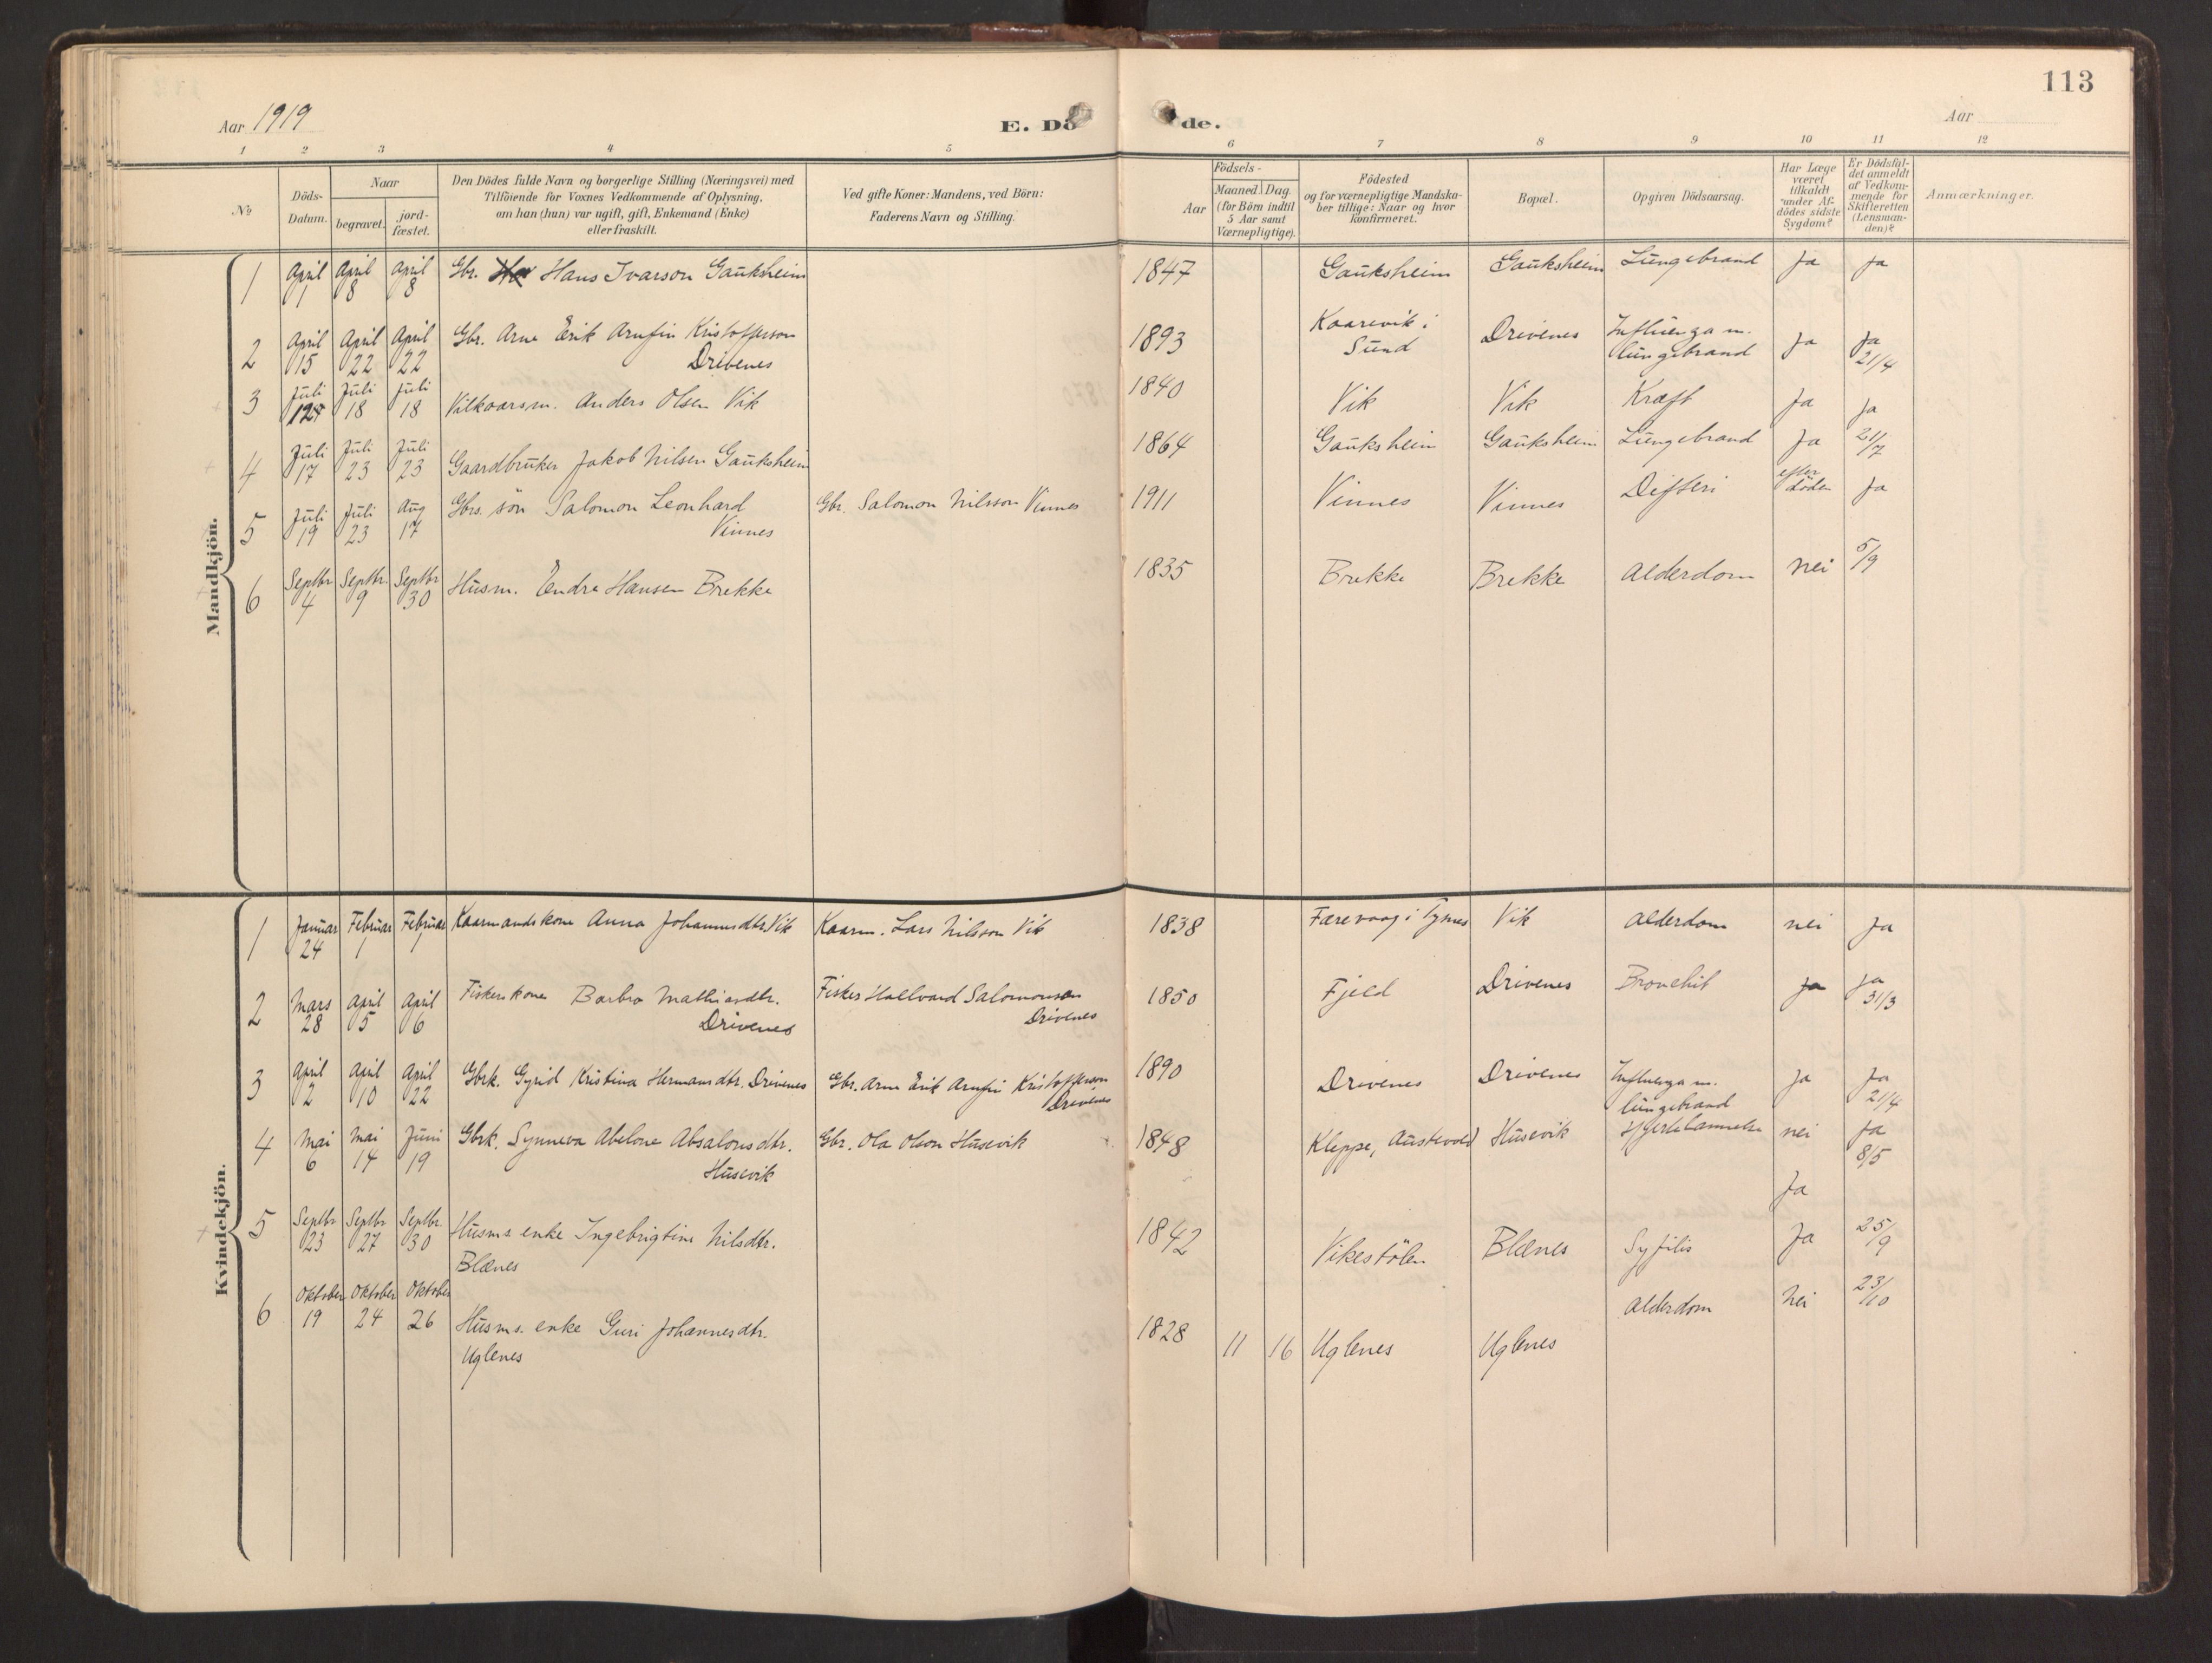 113
Aar 1919
E. Dö de.
Aar
1 2 3 4 5 6 7 8 9 10 11 12
№
Döds-Datum.
Naar
begravet.
jord-fæstet.
Den Dödes fulde Navn og borgerlige Stilling (Næringsvei) med
Tilföiende for Voxnes Vedkommende af Oplysning,
om han (hun) var ugift, gift, Enkemand (Enke)
eller fraskilt.
Ved gifte Koner: Mandens, ved Börn:
Faderens Navn og Stilling.
Födsels-
Aar
Maaned. Dag.
(for Börn indtil
5 Aar samt
Værnepligtige).
Födested
og for værnepligtige Mandska-
ber tillige: Naar og hvor
konfirmeret.
Bopæl.
Opgiven Dödsaarsag.
Har Læge
været
tilkaldt
under Af-
dödes sidste
Sygdom?
Er Dödsfal-
det anmeldt
af Vedkom-
mende for
Skifteretten
(Lensman-
den)?
Anmærkninger.
Mandkjön.
1 April 1 April 8 April 8 Gbr. Hans Ivarson Gauksheim 1847 Gauksheim Gauksheim Lungebrand Ja Ja
2 April 15 April 22 April 22 Gbr. Arne Erik Arnfin Kristofferson
Drivenes 1893 Kaarevik i
Sund Drivenes Influenza m.
lungebrand Ja Ja
21/4
3 Juli Juli 18 Juli 18 Vilkaarsm. Anders Olsen Vik 1840 Vik Vik Kræft Ja Ja
4 Juli 17 Juli 23 Juli 23 Gaardbruker Jakob Nilsen Gauksheim 1864 Gauksheim Gauksheim Lungebrand Ja 21/7
5 Juli 19 Juli 23 Aug 17 Gbrs. sön Salomon Leonhard
Vinnes Gbr. Salomon Nilsson Vinnes 1911 Vinnes Vinnes Difteri efter
döden Ja
6 Septbr 4 Septbr. 9 Septbr 30 Husm. Endre Hansen Brekke 1835 Brekke Brekke Alderdom Nei 5/9
Kvindekjön.
1 Januar 24 Februar 1 Februar 1 Kaarmandskone Anna Johannesdtr. Vik Kaarm. Lars Nilsson Vik 1838 Færevaag i Tysnes Vik Alderdom nei Ja
2 Mars 28 April 5 April 6 Fiskerskone Barbro Mathiasdtr.
Drivenes Fisker Hallvard Salomonson
Drivenes 1850 Fjeld Drivenes Bronchit Ja Ja
31/3
3 April 2 April 10 April 22 Gbrk. Gyrid Kristina Hermansdtr. Drivenes Gbr. Arne Erik Arnfin Kristofferson
Drivenes 1890 Drivenes Drivenes Influenza m.
lungebrand Ja Ja
21/4
4 Mai 6 Mai 14 Juni 19 Gbrk. Synneva Abelone Absalonsdtr.
Husevik Gbr. Ola Olson Husevik 1848 Kleppe, Austevold Husevik Hjertelammelse nei Ja
8/5
Ja
5 Septbr 23 Septbr 27 Septbr. 30 Husms. enke Ingebrigtine Nilsdtr.
Blænes 1842 Vikestölen Blænes Syfilis Ja 25/9
6 Oktober 19 Oktober 24 Oktober 26 Husms. enke Guri Johannesdtr.
Uglenes 1828 11 16 Uglenes Uglenes Alderdom Nei 23/10